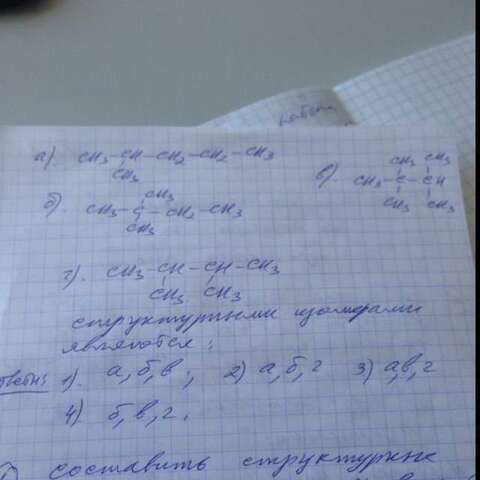 работа
а). CH3-CH-CH2-CH2-CH3
CH3
б). CH3-C-CH2-CH3
CH3
CH3
в). CH3-C-CH
CH3 CH3
CH3 CH3
г). CH3-CH-CH-CH3
CH3 CH3
структурными изомерами
являются:
ответы: 1). а, б, в; 2) а, б, г 3) а, в, г
4) б, в, г.
составить структурные